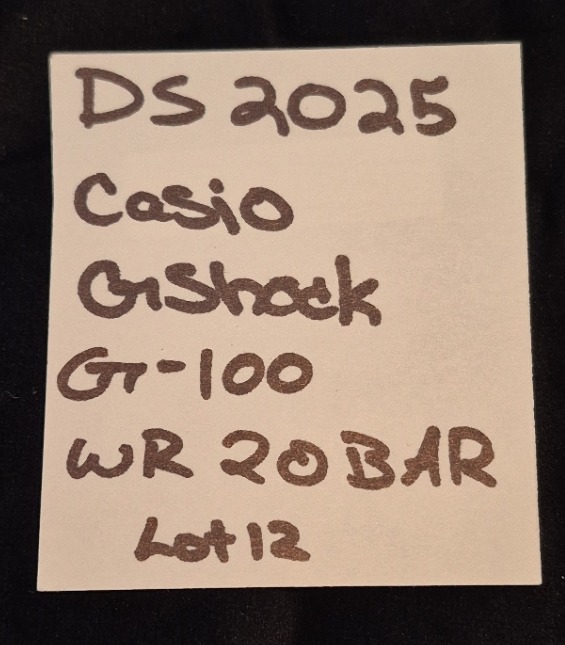 DS 2025
Casio
GShock
G-100
WR 20BAR
Lot 12